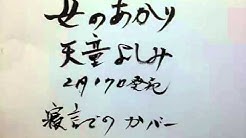 母のあかり
天童よしみ
2月17日発売
寝言でのカバー